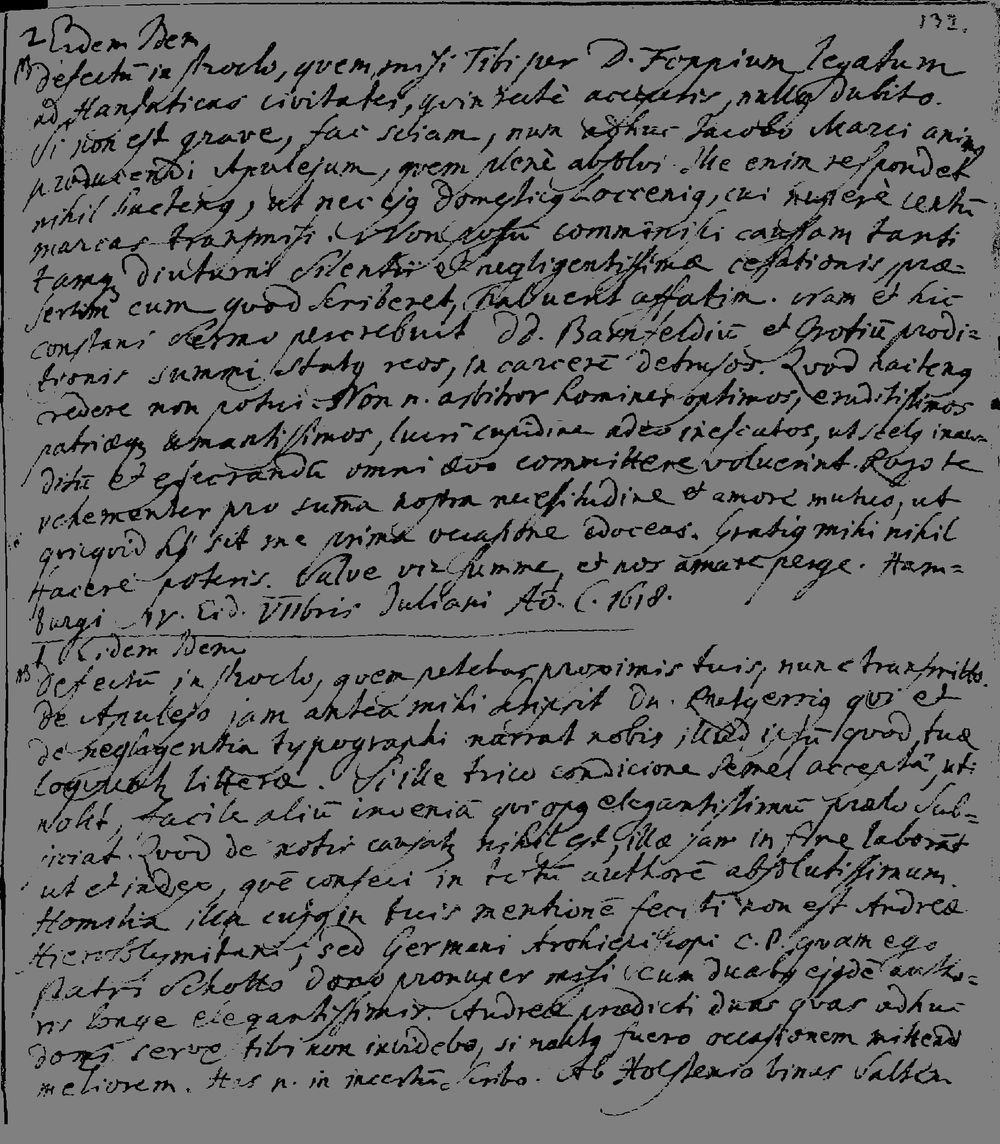 132.
2 Eidem Idem
defectũ in Proclo, quem misi Tibi per D. Foppium legatum
ad Hansaticas civitates, quin recte acceperis, nullq dubito.
Si non est grave, fac sciam, num adhuc Jacobo Marci animq
producendi Apulejum, quem plenè absolvi. Ille enim respondet
nihil hactenq, ut nec ejq domesticq Locceniq, cui nuperè centũ
marcas transmisi. Non possũ comminisci caussam tanti
tamq diuturni silentii et negligentissimæ cessationis, præ=
sertim cum quod scriberet, habuerit affatim. nam et hic
constans sermo percrebuit DD. Barnfeldiũ et Grotiũ prodi=
tionis summi statq reos, in carcerẽ detrusos. Quod hactenq
credere non potui. Non n. arbitror homines optimos, eruditissimos
patriæq amantissimos, lucri cupidine adeo inescatos, ut scelq inau=
ditũ et execrandũ omni ævo committere voluerint. Rogo te
vehementer pro sum̃a nostra necessitudine et amore mutuo, ut
quicquid hj sit me prima occasione edoceas. Gratiq mihi nihil
facere poteris. Salve vir summe, et nos amare perge. Ham=
burgi IV. Eid. VIIbris Juliani Aõ. C. 1618.
1 Eidem Idem
defectũ in Proclo, quem petebas proximis tuis, nunc transmitto.
de Apulejo jam antea mihi scripsit Dn. Rutgersiq qui et
de neglegentia typographi narrat nobis illud ipsũ quod tuæ
loquuntq litteræ. Si ille trico condicione semel acceptâ, uti
nolit, facile aliũ inveniã qui opq elegantissimũ prælo sub=
iiciat. Quod de notis causatq nihil est, illæ jam in fine laborãt
ut et index, quẽ confeci in totũ authorẽ absolutissimum.
Homilia illa cujq in tuis mentionẽ fecisti non est Andreæ
Hierosolymitani, sed Germani Archiepiscopi C. P. quam ego
Patri Schotto dono pronuper misi cum duabq ejqdẽ autho=
ris longe elegantissimis. Andreæ prædicti duas quas adhuc
domi servo tibi non invidebo, si nactq fuero occasionem mittendi
meliorem. Has n. in incertũ scribo. Ab Holstenio binas saltẽ